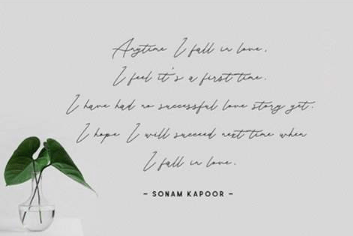 Anytime I fall in love,
I feel it's a first time.
I have had no successful love story yet.
I hope I will succeed next time when
I fall in love.
– SONAM KAPOOR –